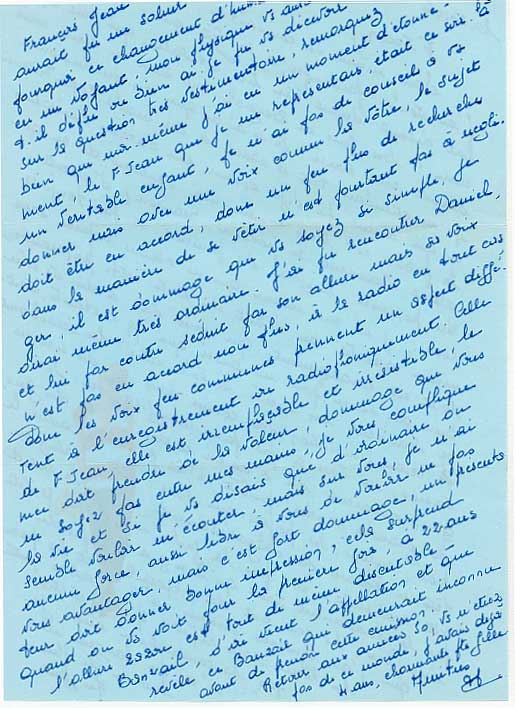 François Jean
aurait fu un
pourquoi ce changement d'
en me voyant, mon physique vs
t-il déplu ou bien ai-je pu vs décevoir
sur la question très vestimentaire, remarquez
bien que moi-même j'ai eu un moment d'étonne-
ment, le F. Jean que je me représentais, était ce soir là
un véritable enfant, je n'ai pas de conseils à vs
donner mais avec une voix comme la vôtre, le sujet
doit être en accord, donc un peu plus de recherches
dans la manière de se vêtir n'est pourtant pas à négli-
ger, il est dommage que vs soyez si simple, je
dirai même très ordinaire. J'ai pu rencontrer Daniel,
et lui par contre séduit par son allure mais sa voix
n'est pas en accord non plus, à la radio en tout cas
Donc les voix peu communes prennent un aspect diffé-
rent à l'enregistrement ou radiophoniquement. Celle
de F. Jean, elle est irremplaçable et irrésistible, le
mec doit prendre de la valeur, dommage que vous
ne soyez pas entre mes mains, je vous complique
la vie et si je vs disais que d'ordinaire on
semble vouloir m'écouter, mais sur vous, je n'ai
aucune force, aussi libre à vous de vouloir ne pas
vous avantager, mais c'est fort dommage, un présenta-
teur doit donner bonne impression, cela surprend
quand on vs voit pour la première fois, à 22 ans
l'allure est tout de même discutable.
Banzaïl, d'où vient l'appellation et que
révèle ce Banzaïl qui demeurait inconnu
avant de prendre cette émission.
Retour aux années 50, vs n'étiez
pas de ce monde, j'avais déjà
4 ans, charmante pte fille